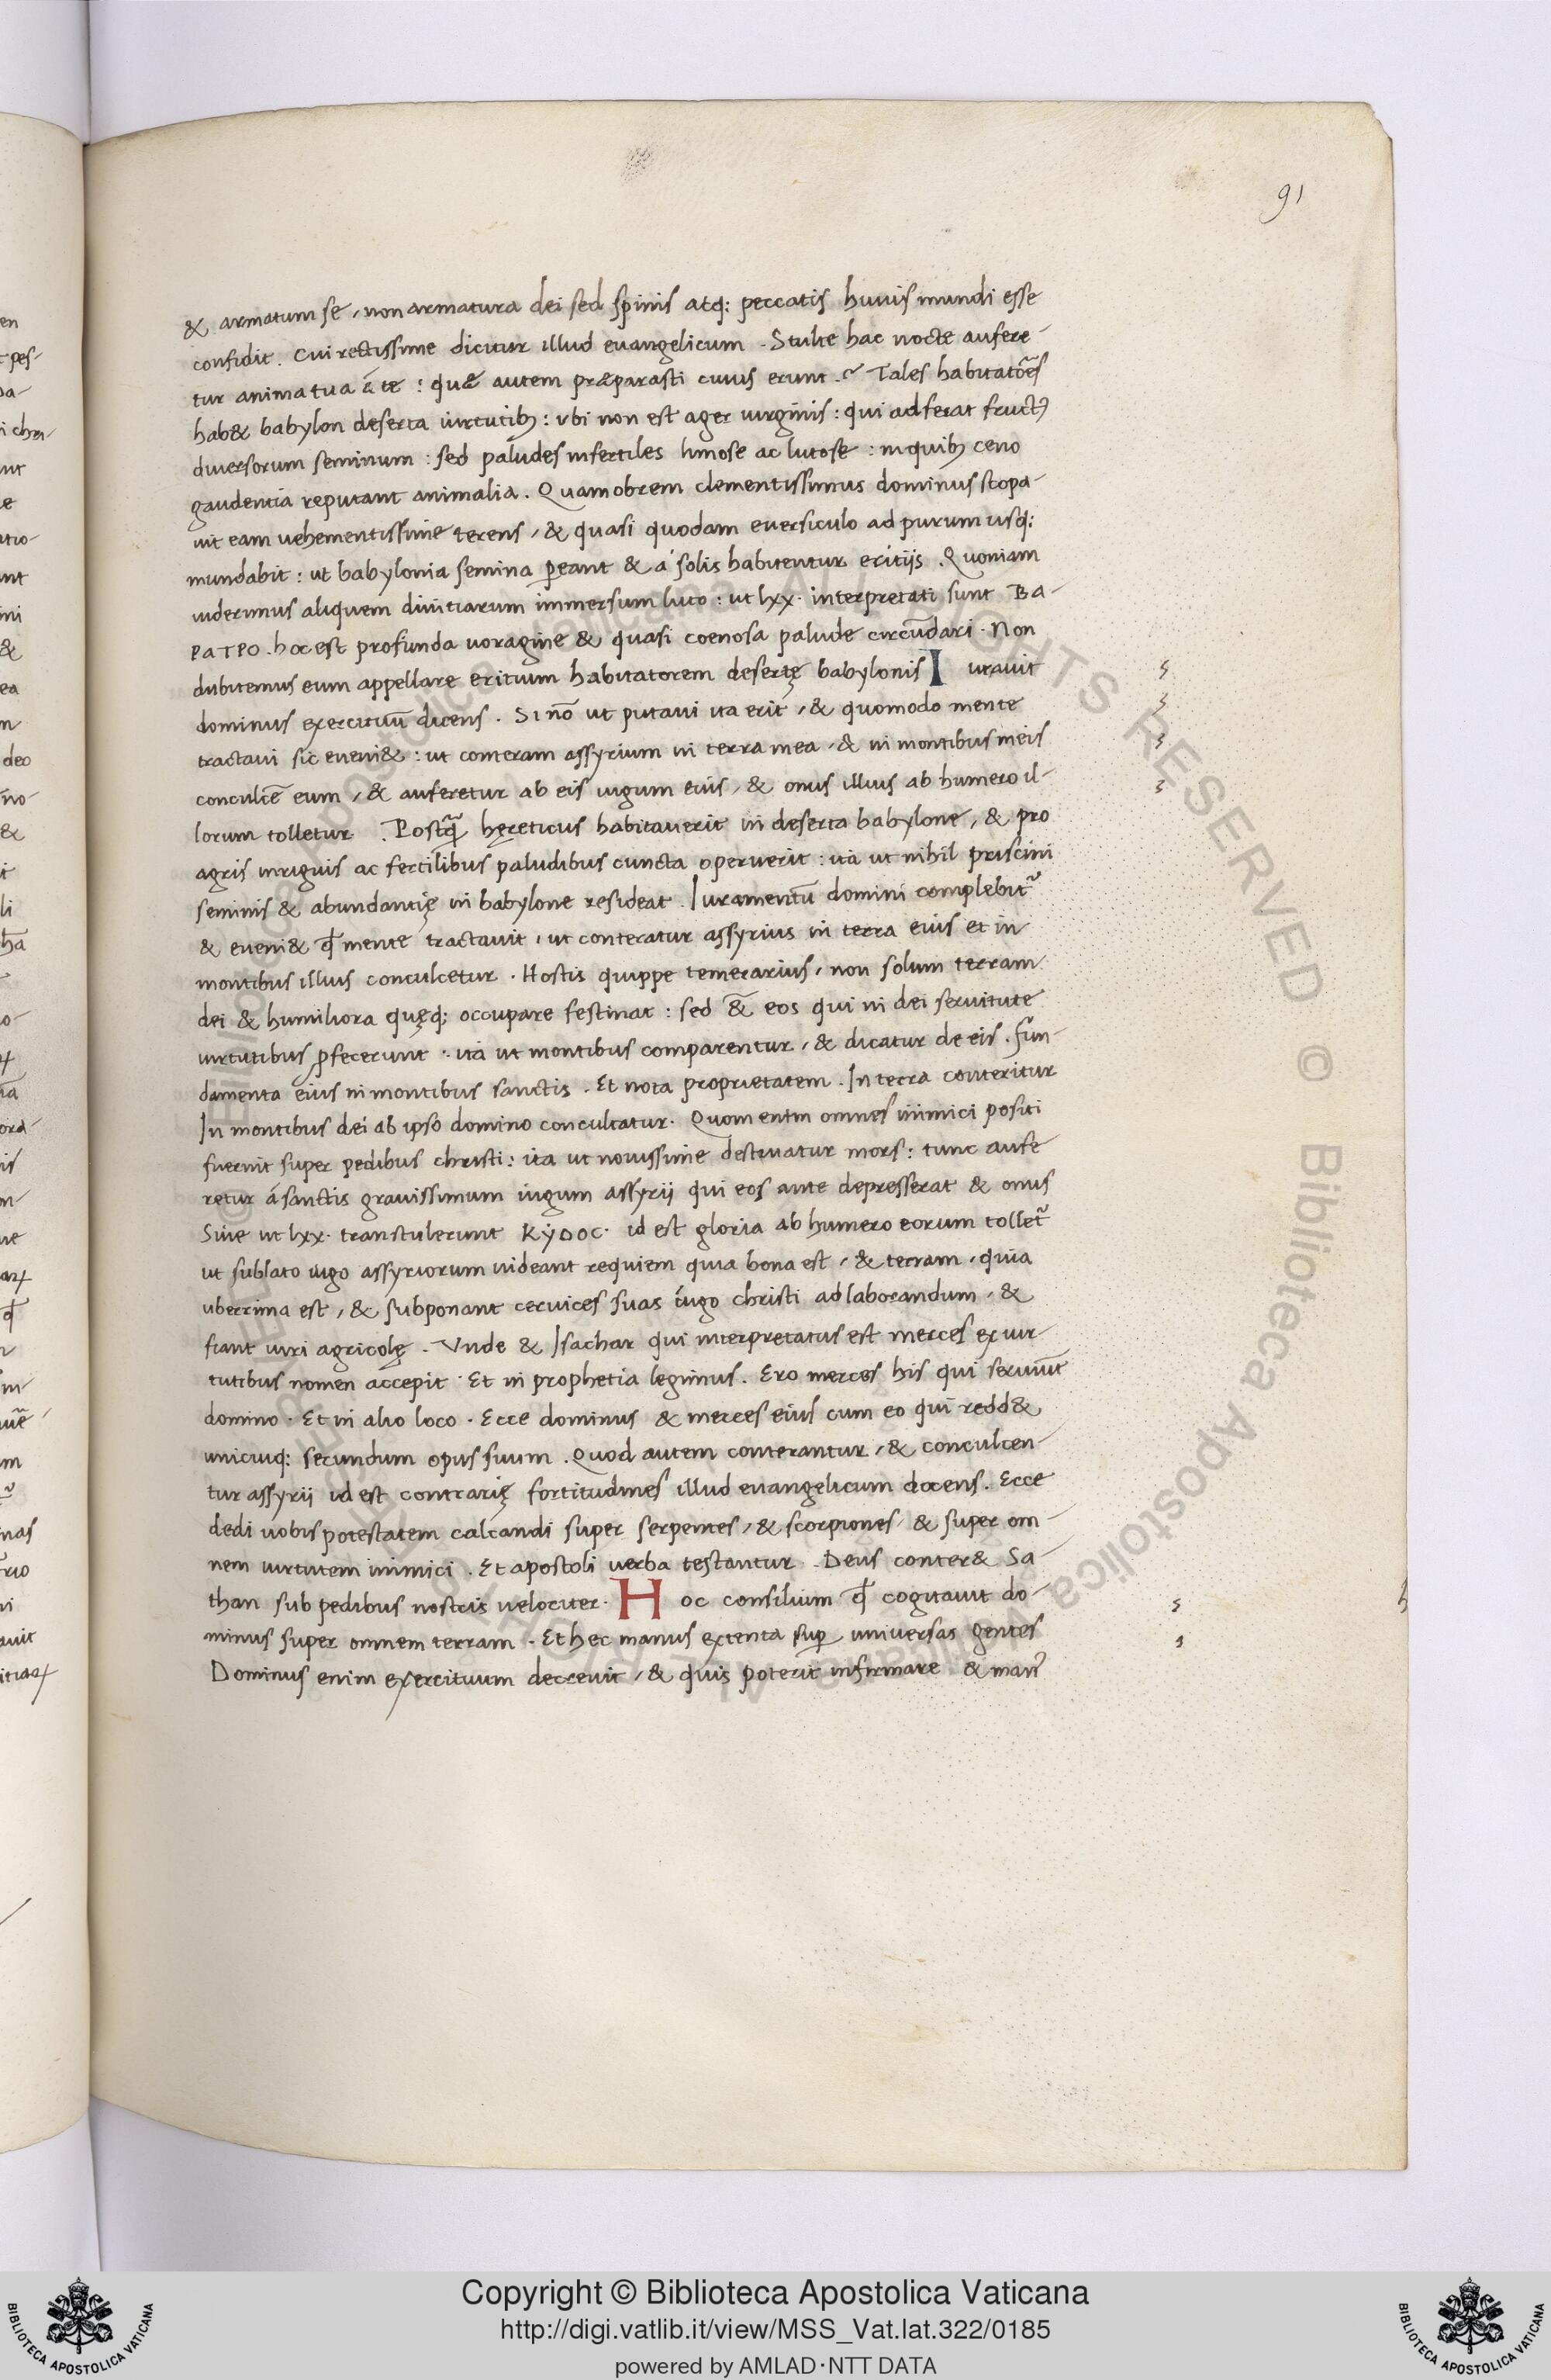 91
& armatum se, non armatura dei sed spinis atq; peccatis huius mundi esse
confidit. Cui rectissime dicitur illud euangelicum. Stulte hac nocte aufere-
tur anima tua á te: quæ autem præparasti cuius erunt? Tales habitatões
hab& babylon deserta uirtutibꝫ: ubi non est ager uirginis: qui adferat fructꝰ
diuersorum seminum: sed paludes infertiles limose ac lutose: in quibꝫ ceno
gaudentia reputant animalia. Quamobrem clementissimus dominus scopa-
uit eam uehementissime terens, & quasi quodam euersiculo ad purum usq;
mundabit: ut babylonia semina ꝑeant & á solis habitentur eritijs. Quoniam
uiderimus aliquem diuitiarum immersum luto: ut lxx. interpretati sunt BA-
PATPO. hoc est profunda uoragine & quasi coenosa palude circũdari. Non
dubitemus eum appellare eritium habitatorem desertę babylonis Iurauit
dominus exercituũ dicens. Si nõ ut putaui ita erit, & quomodo mente
tractaui sic eueni&: ut conteram assyrium in terra mea, & in montibus meis
conculcẽ eum, & auferetur ab eis iugum eius, & onus illius ab humero il-
lorum tolletur. Postq̃ hęreticus habitauerit in deserta babylone, & pro
agris inriguis ac fertilibus paludibus cuncta operuerit: ita ut nihil priscini
seminis & abundantię in babylone resideat. Iuramentũ domini complebit᷑
& eueni& qđ mente tractauit, ut conteratur assyrius in terra eius et in
montibus illius conculcetur. Hostis quippe temerarius, non solum terram
dei & humiliora quęq; occupare festinat: sed &̃ eos qui in dei seruitute
uirtutibus ꝓfecerunt: ita ut montibus comparentur, & dicatur de eis. Fun-
damenta eius in montibus sanctis. Et nota proprietatem. In terra conteritur
In montibus dei ab ipso domino conculcatur. Quom enim omnes inimici positi
fuerint super pedibus christi: ita ut nouissime destruatur mors: tunc aufe
retur á sanctis grauissimum iugum assyrii qui eos ante depresserat & onus
Siue ut lxx. transtulerunt KẏDOC. id est gloria ab humero eorum tollet᷑
ut sublato iugo assyriorum uideant requiem quia bona est, & terram, quia
uberrima est, & subponant ceruices suas iugo christi ad laborandum, &
fiant uiri agricolę. Unde & Isachar qui interpretatus est merces ex uir-
tutibus nomen accepit. Et in prophetia legimus. Ero merces his qui seruiũt
domino. Et in alio loco. Ecce dominus & merces eius cum eo qui redd&
unicuiq; secundum opus suum. Quod autem conterantur, & conculcen-
tur assyrii id est contrarię fortitudines illud euangelicum docens. Ecce
dedi uobis potestatem calcandi super serpentes, & scorpiones & super om-
nem uirtutem inimici. Et apostoli uerba testantur. Deus conter& Sa-
than sub pedibus nostris uelociter. Hoc consilium qđ cogitauit do-
minus super omnem terram. Et hec manus extenta suꝑ uniuersas gentes
Dominus enim exercituum decreuit, & quis poterit infirmare & manꝰ
Copyright © Biblioteca Apostolica Vaticana
http://digi.vatlib.it/view/MSS_Vat.lat.322/0185
powered by AMLAD·NTT DATA